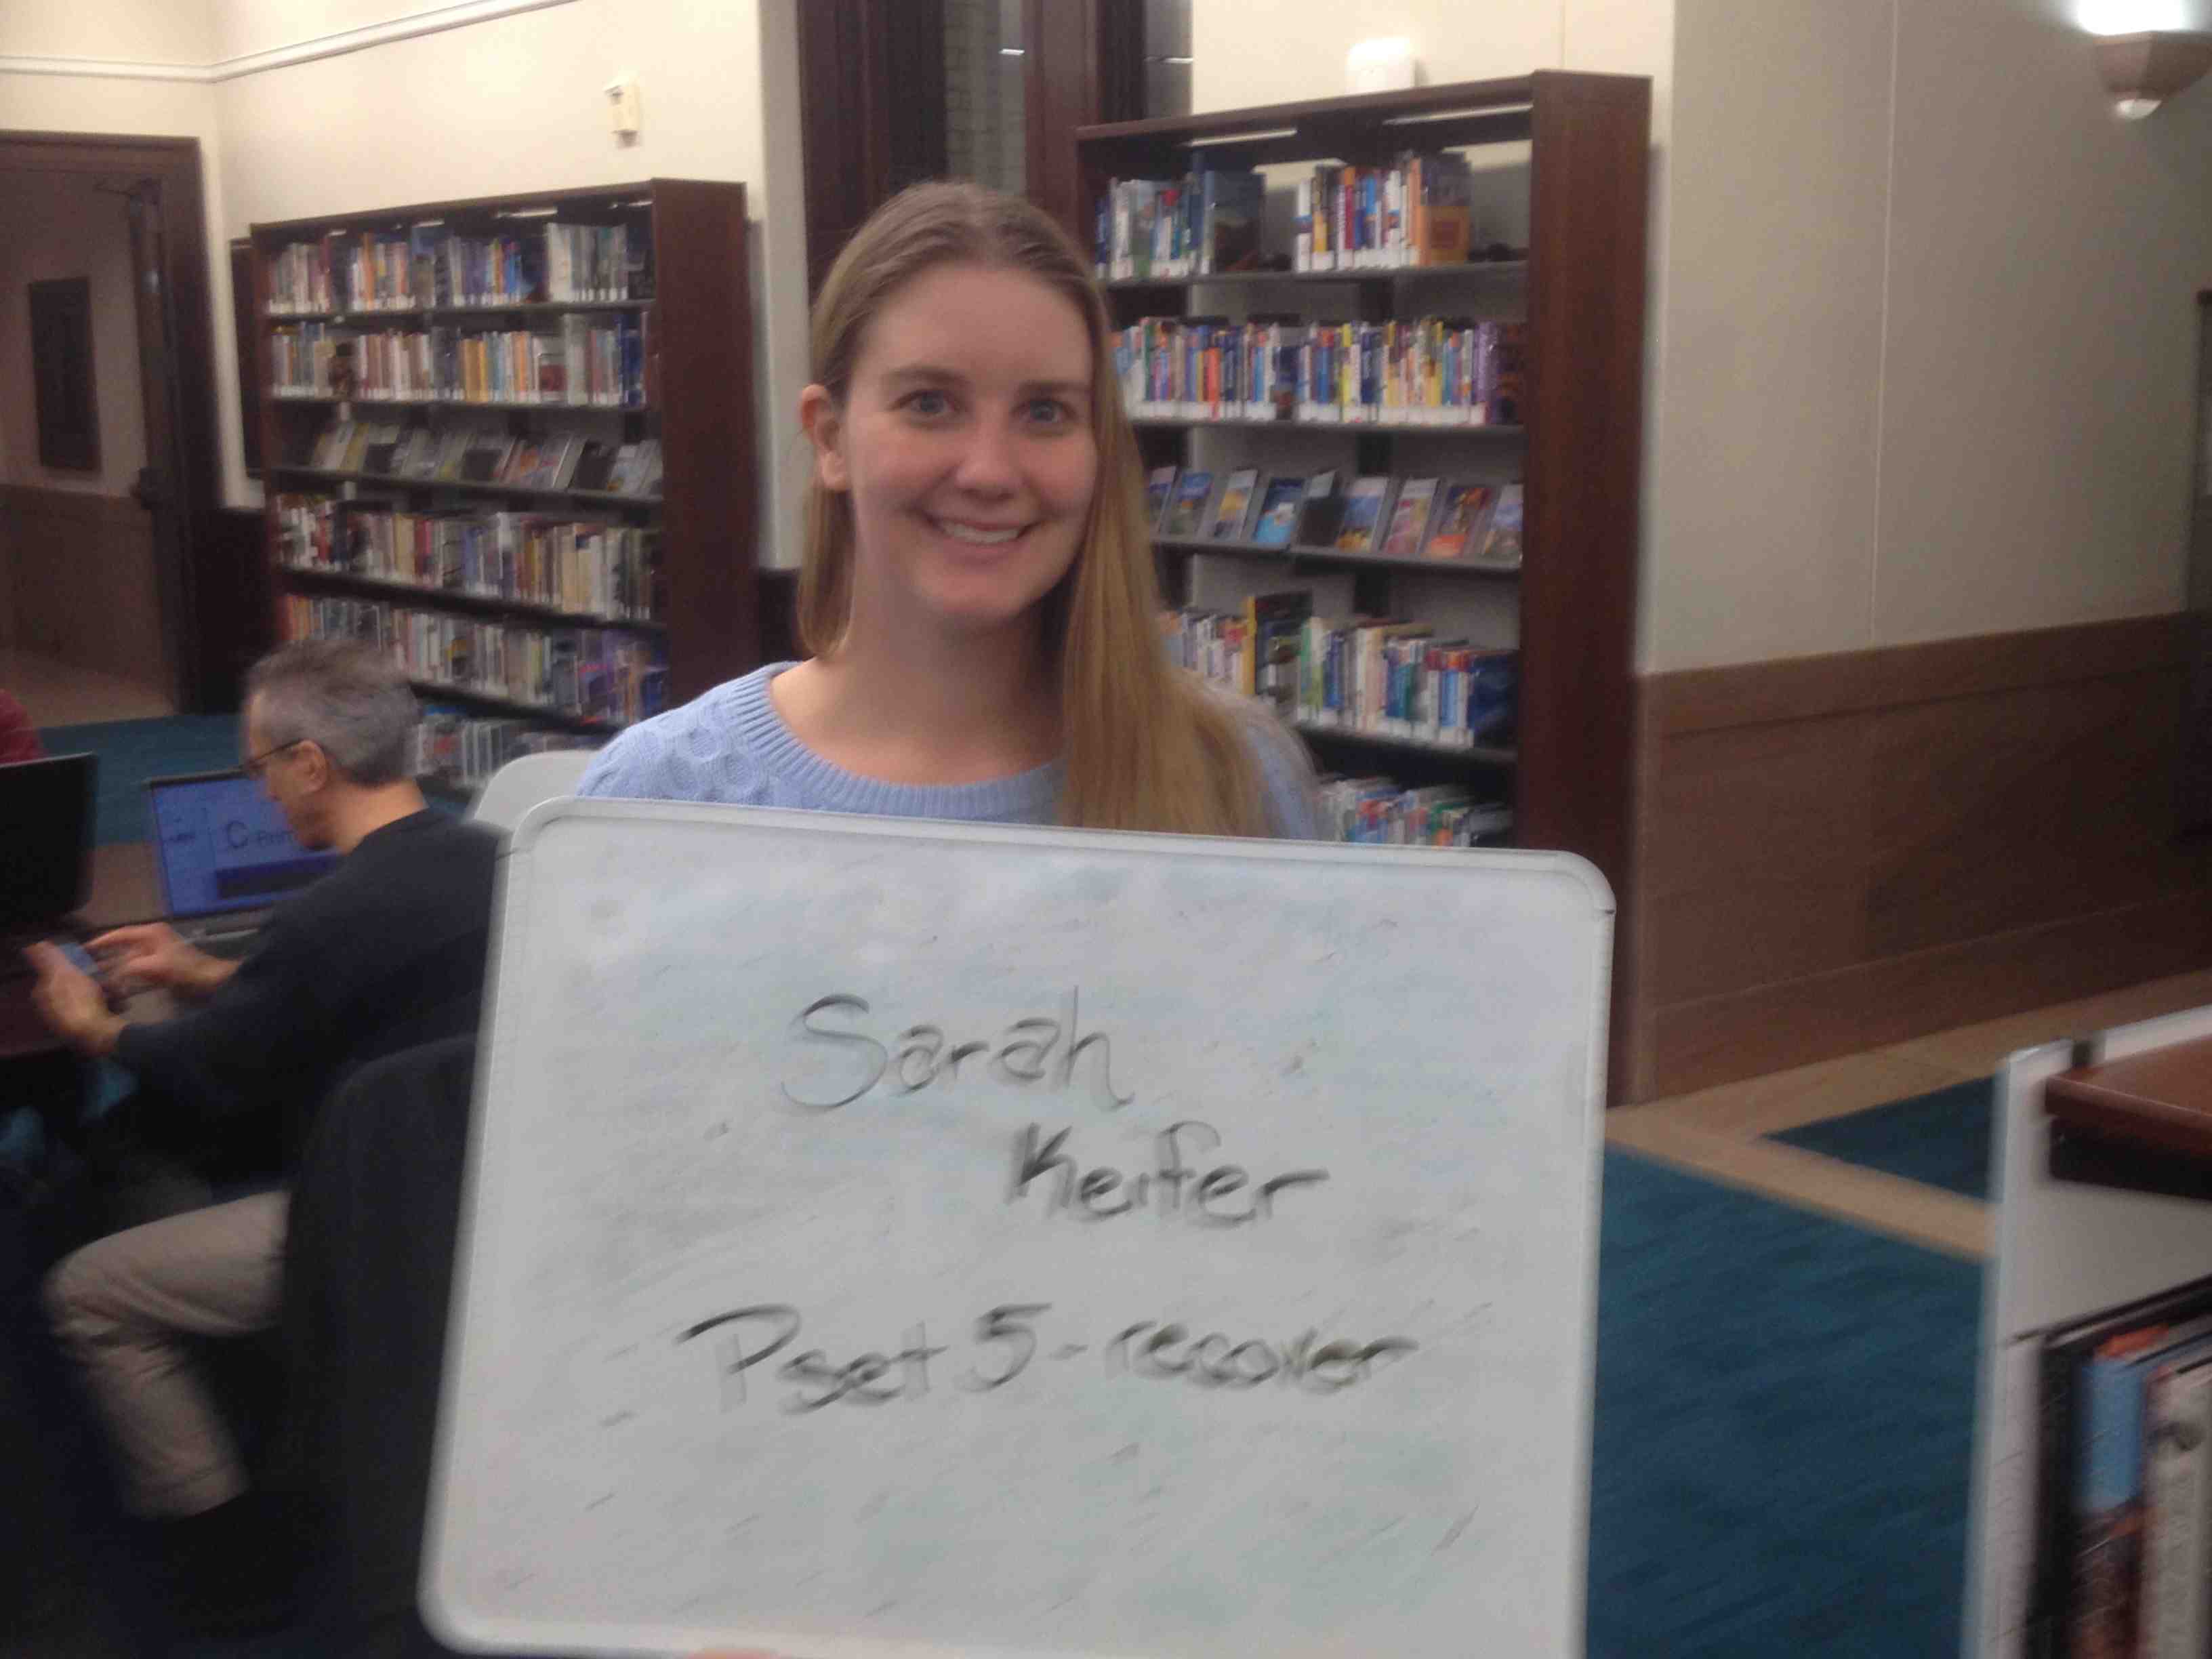 Sarah
Keifer
Pset 5 - recover